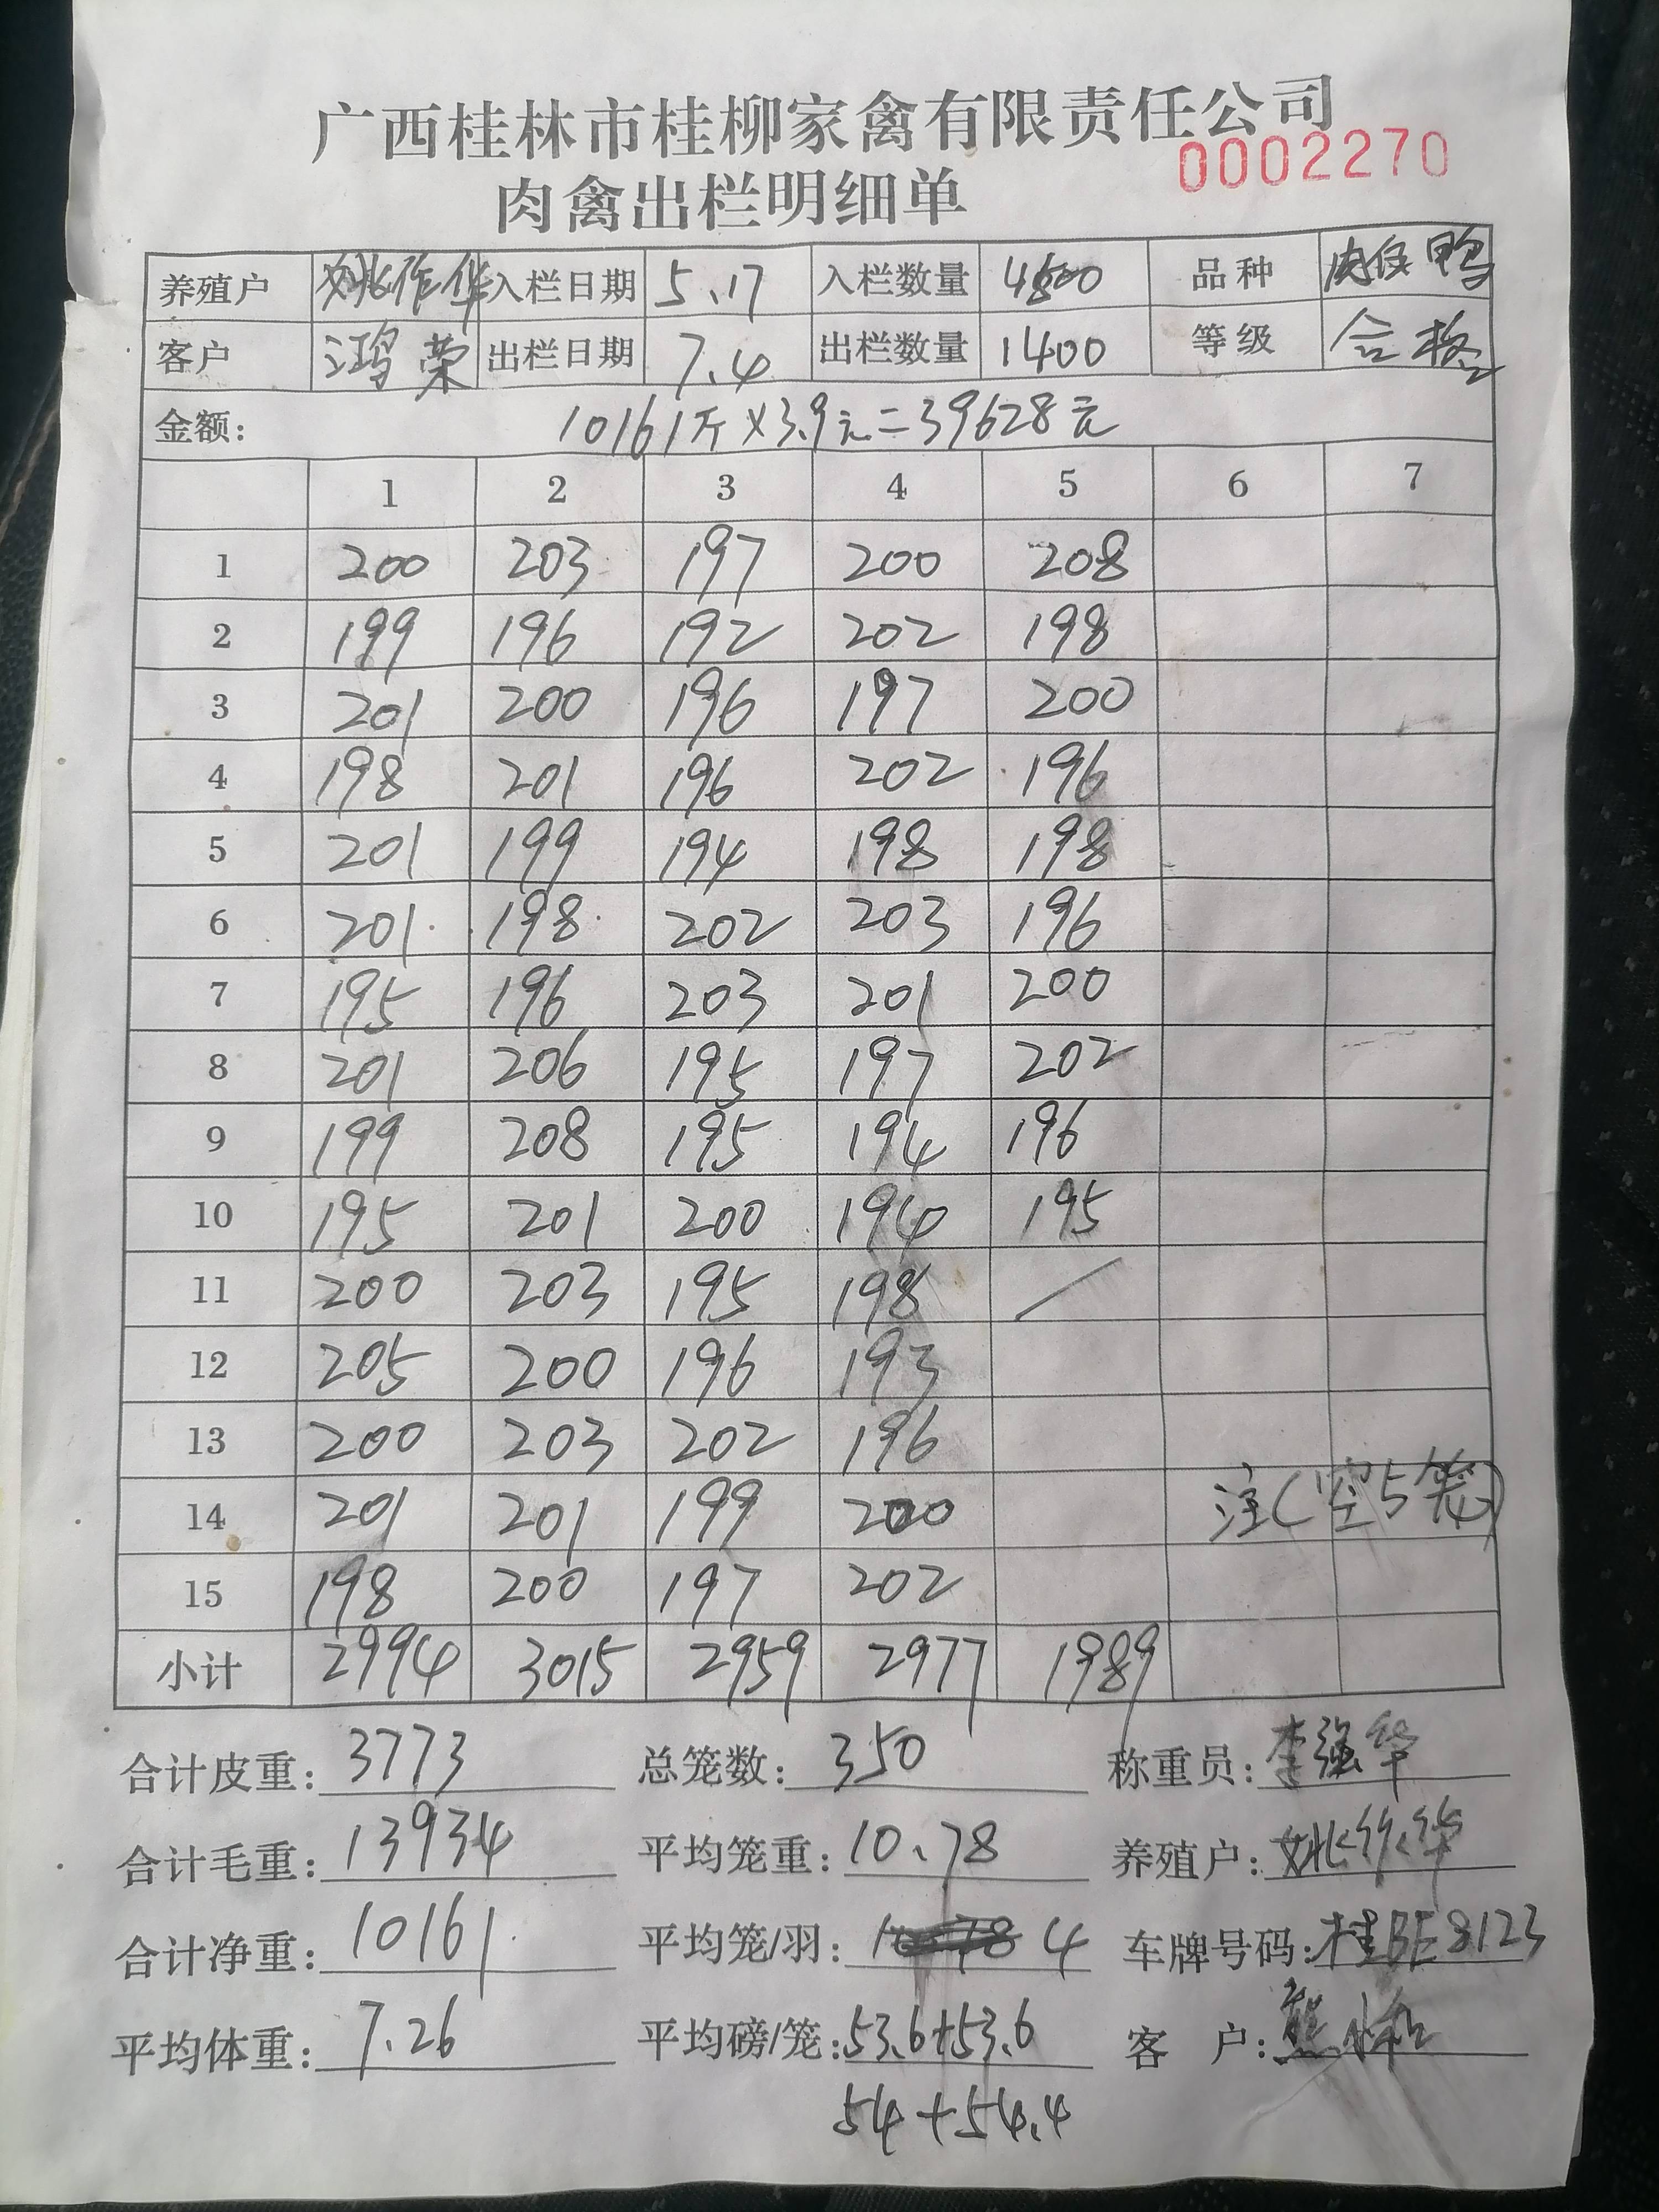 广西桂林市桂柳家禽有限责任公司
0002270
肉禽出栏明细单
养殖户 姚作华 入栏日期 5.17 入栏数量 4800 品种 鸭
客户 鸿荣 出栏日期 7.4 出栏数量 1400 等级 合格
金额: 10161斤×3.9元=39628元
1 2 3 4 5 6 7
1 200 203 197 200 208
2 199 196 192 202 198
3 201 200 196 197 200
4 198 201 196 202 196
5 201 199 194 198 198
6 201 198 202 203 196
7 195 196 203 201 200
8 201 206 195 197 202
9 199 208 195 194 196
10 195 201 200 194 195
11 200 203 195 198 /
12 205 200 196 193
13 200 203 202 196
14 201 201 199 200 注(空5笼)
15 198 200 197 202
小计 2994 3015 2959 2977 1989
合计皮重: 3773 总笼数: 350 称重员: 李强华
合计毛重: 13934 平均笼重: 10.78 养殖户: 姚作华
合计净重: 10161 平均笼/羽: 4 车牌号码: 桂BE8123
平均体重: 7.26 平均磅/笼: 53.6+53.6 客 户: 熊
54+54.4